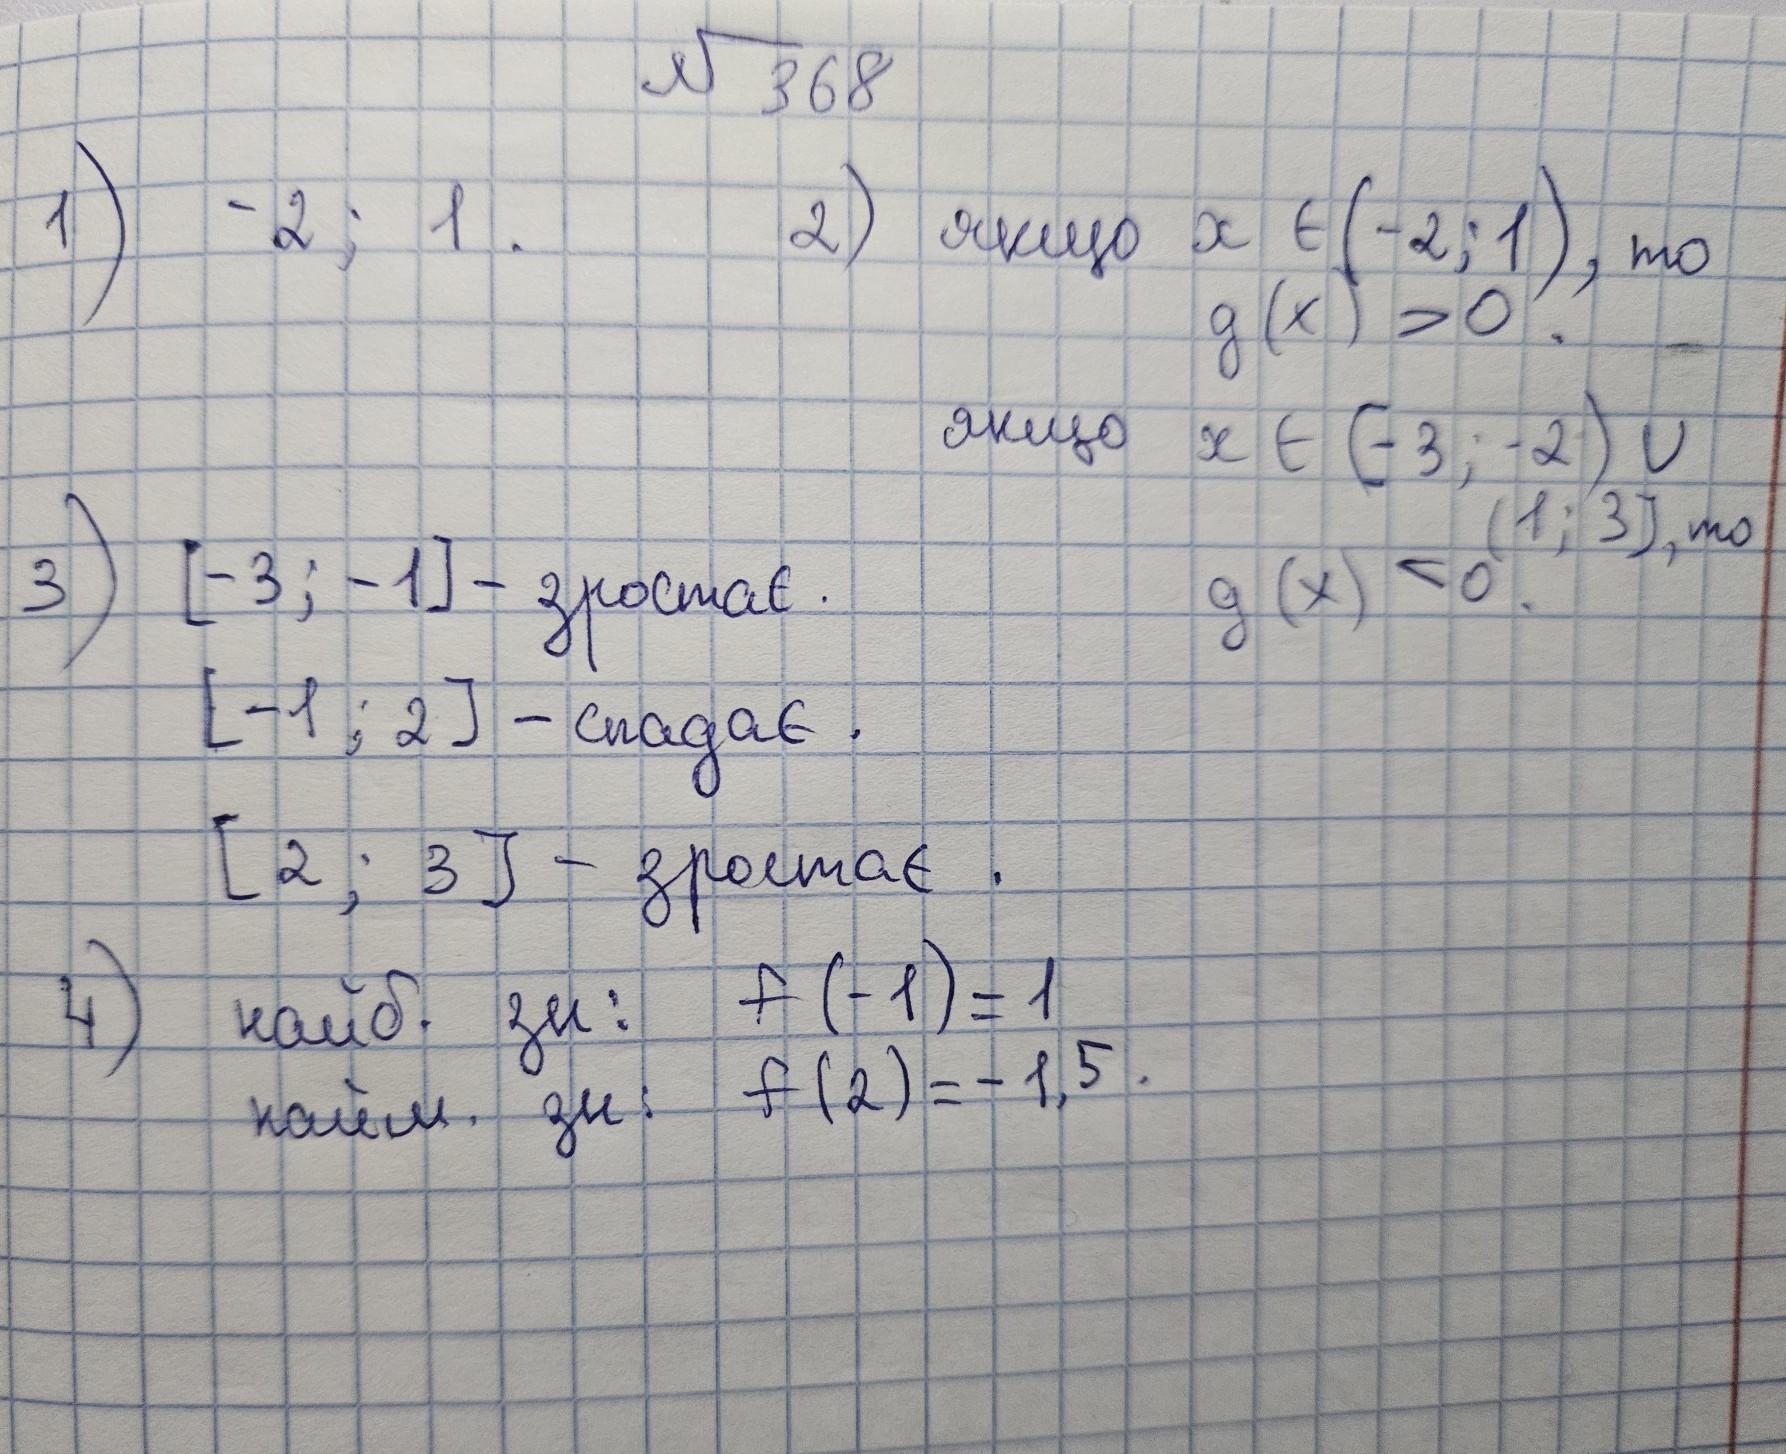 № 368
1) -2; 1. 2) якщо x ∈ (-2; 1), то
g(x) > 0.
якщо x ∈ [-3; -2) ∪
(1; 3], то
g(x) < 0.
3) [-3; -1] - зростає.
[-1; 2] - спадає.
[2; 3] - зростає.
4) найб. зн: f(-1) = 1
найм. зн: f(2) = -1,5.